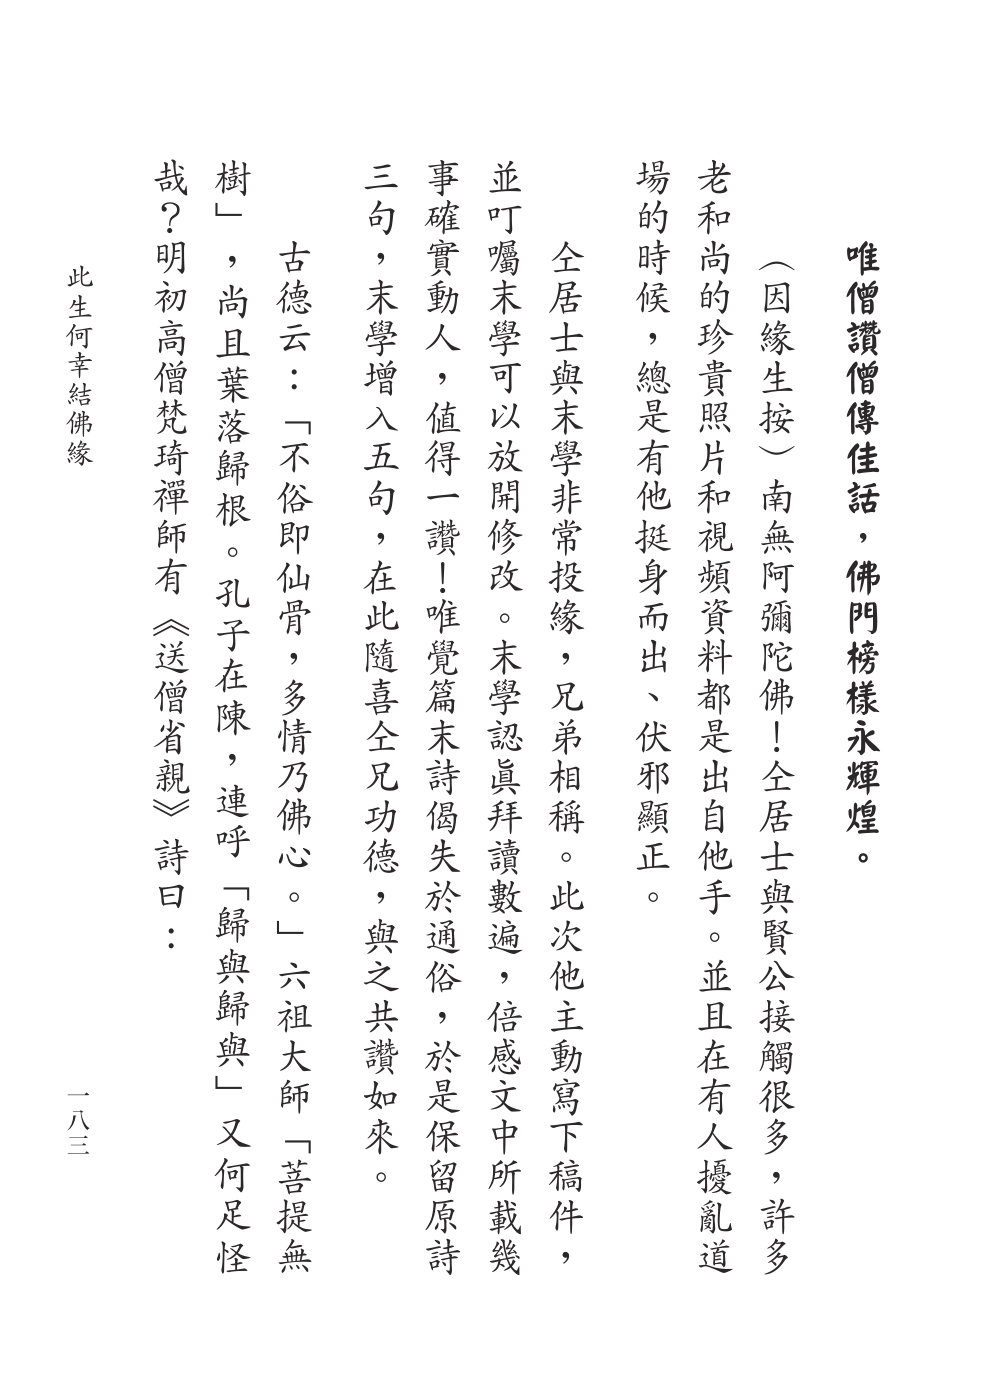 唯僧讚僧傳佳話，佛門榜樣永輝煌。
（因緣生按）南無阿彌陀佛！仝居士與賢公接觸很多，許多
老和尚的珍貴照片和視頻資料都是出自他手。並且在有人擾亂道
場的時候，總是有他挺身而出、伏邪顯正。
仝居士與末學非常投緣，兄弟相稱。此次他主動寫下稿件，
並叮囑末學可以放開修改。末學認眞拜讀數遍，倍感文中所載幾
事確實動人，值得一讚！唯覺篇末詩偈失於通俗，於是保留原詩
三句，末學增入五句，在此隨喜仝兄功德，與之共讚如來。
古德云：「不俗即仙骨，多情乃佛心。」六祖大師「菩提無
樹」，尚且葉落歸根。孔子在陳，連呼「歸與歸與」又何足怪
哉？明初高僧梵琦禪師有《送僧省親》詩曰：
此生何幸結佛緣
一八三